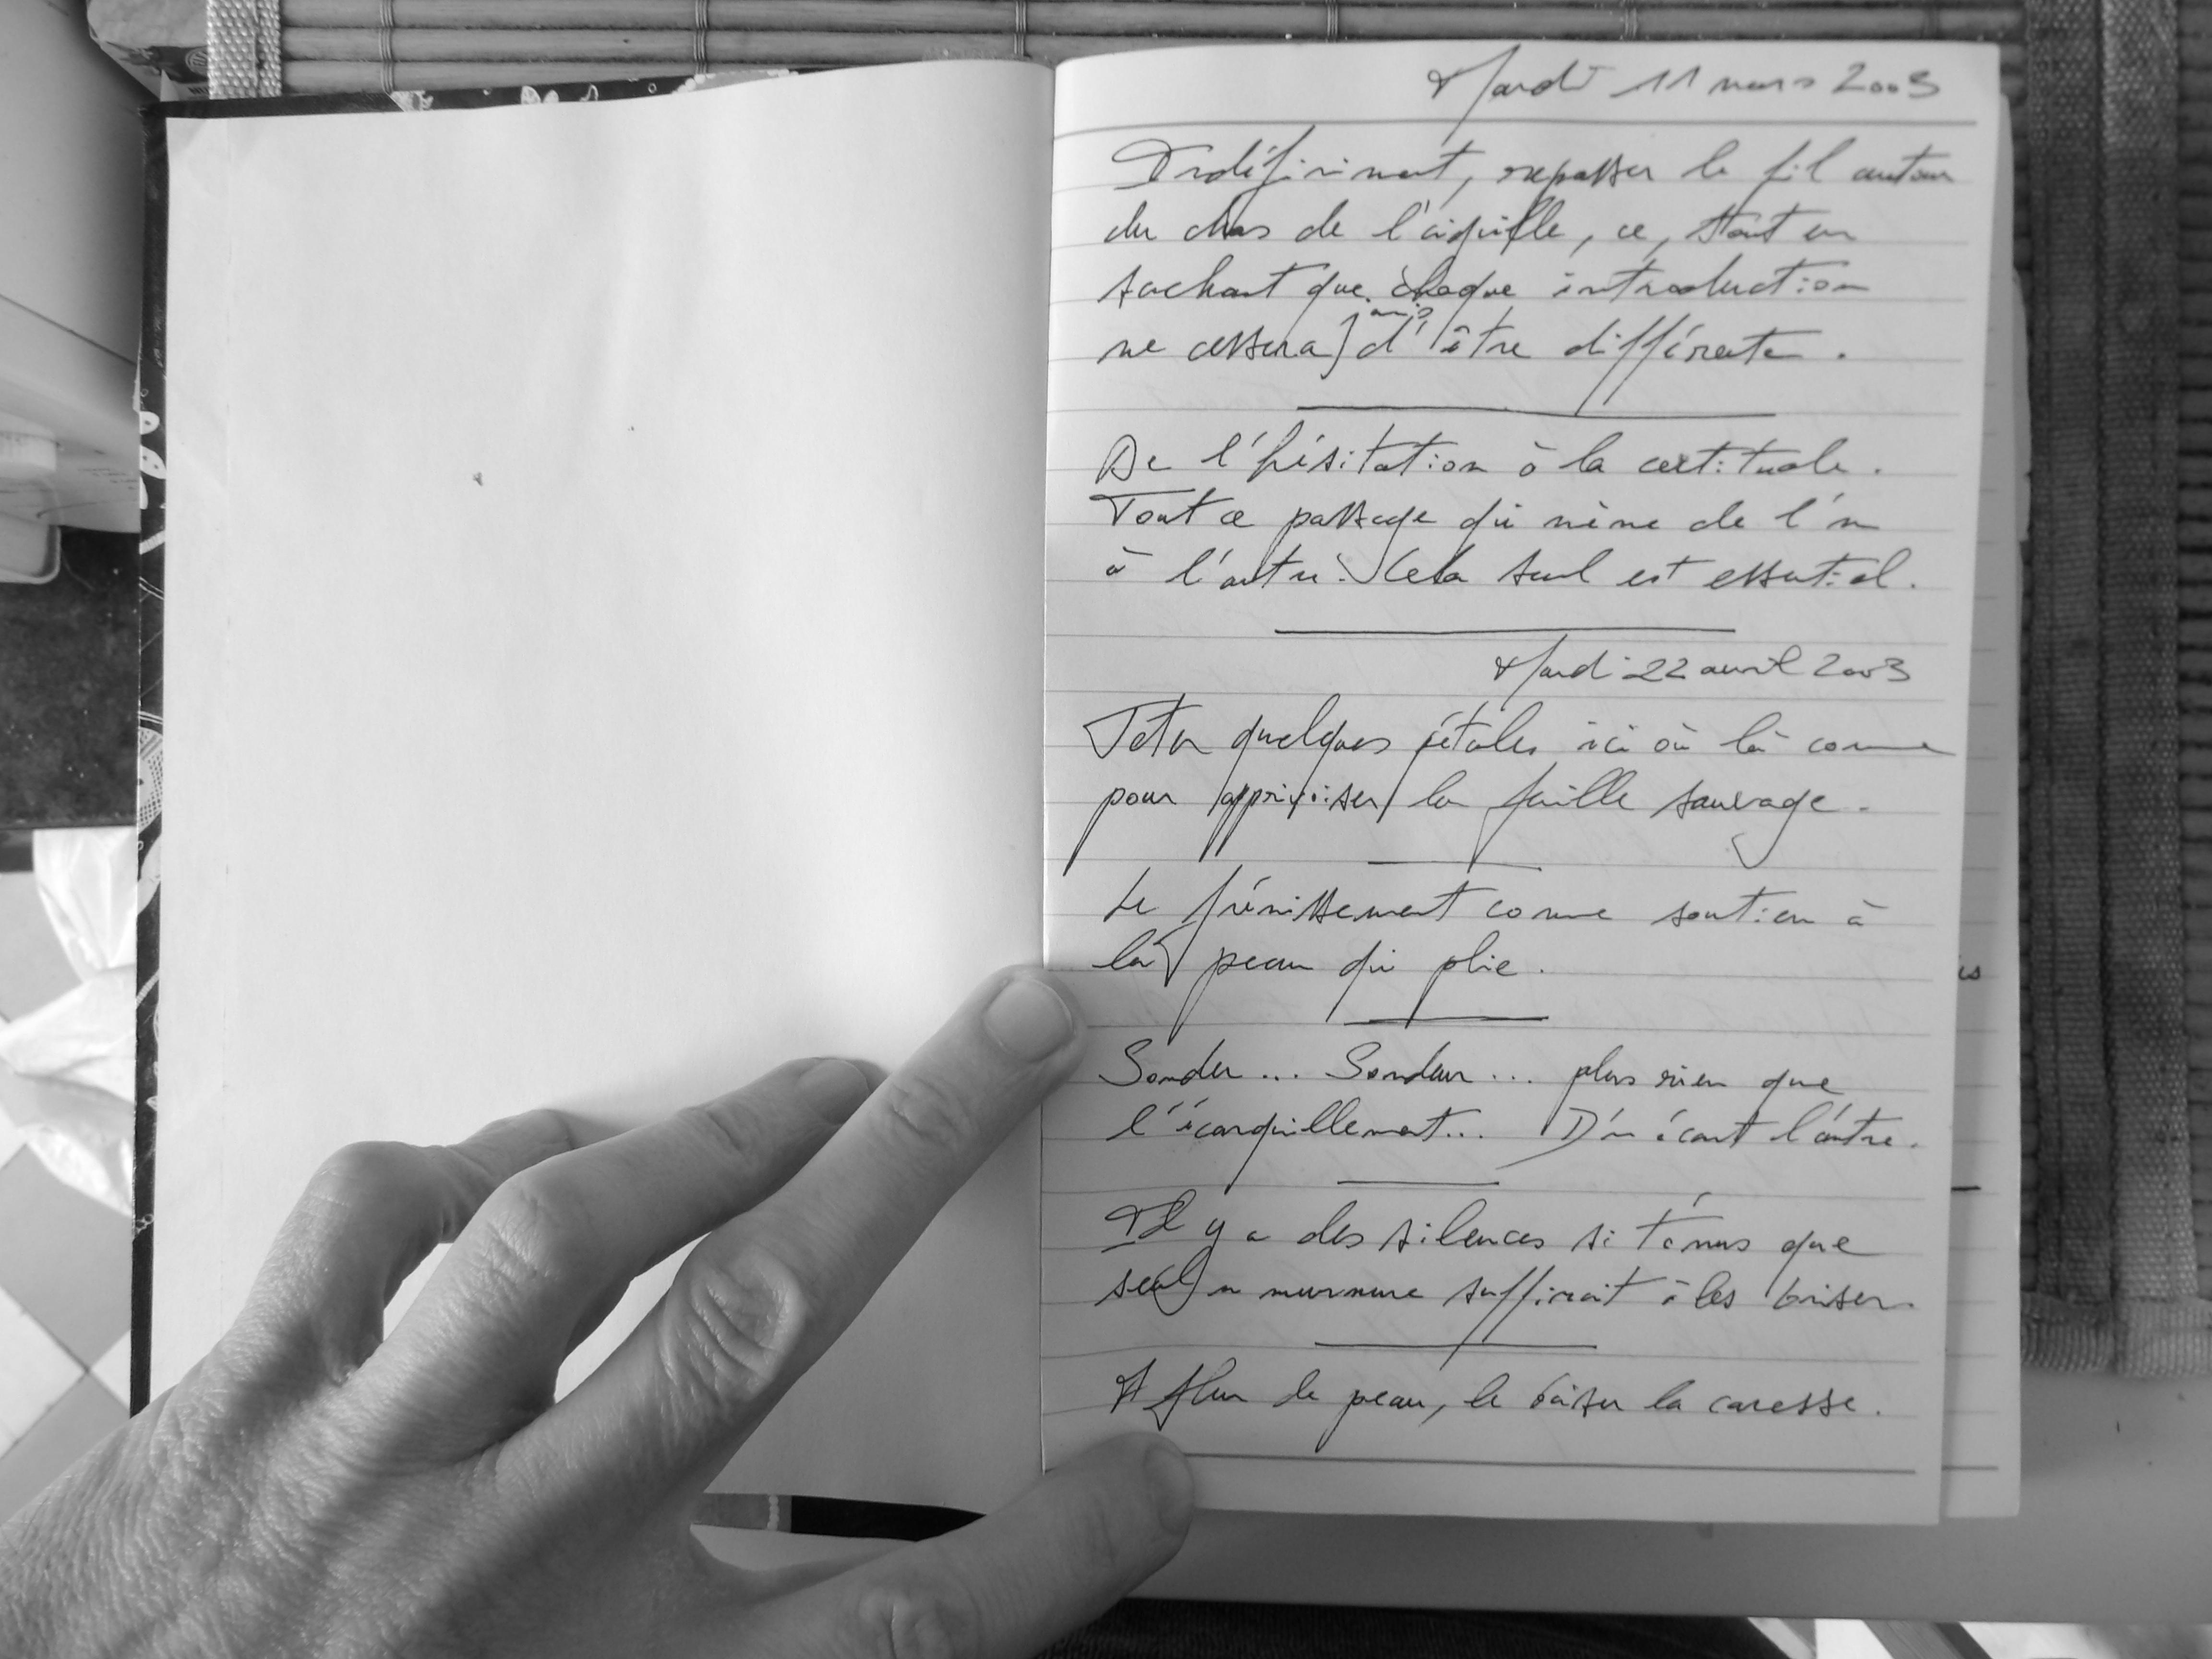 Mardi 11 mars 2003
Indéfiniment, repasser le fil autour
du chas de l'aiguille, ce, tout en
sachant que chaque introduction
ne cessera jamais d'être différente.
De l'hésitation à la certitude.
Tout ce passage qui mène de l'un
à l'autre. Cela seul est essentiel.
Mardi 22 avril 2003
Jeter quelques pétales ici où là comme
pour apprivoiser la faille sauvage.
Le frémissement comme soutien à
la peau qui plie.
Sonder... Sondeur... plus rien que
l'écarquillement... D'un écart l'autre.
Il y a des silences si ténus que
seul un murmure suffirait à les briser.
A fleur de peau, le baiser la caresse.